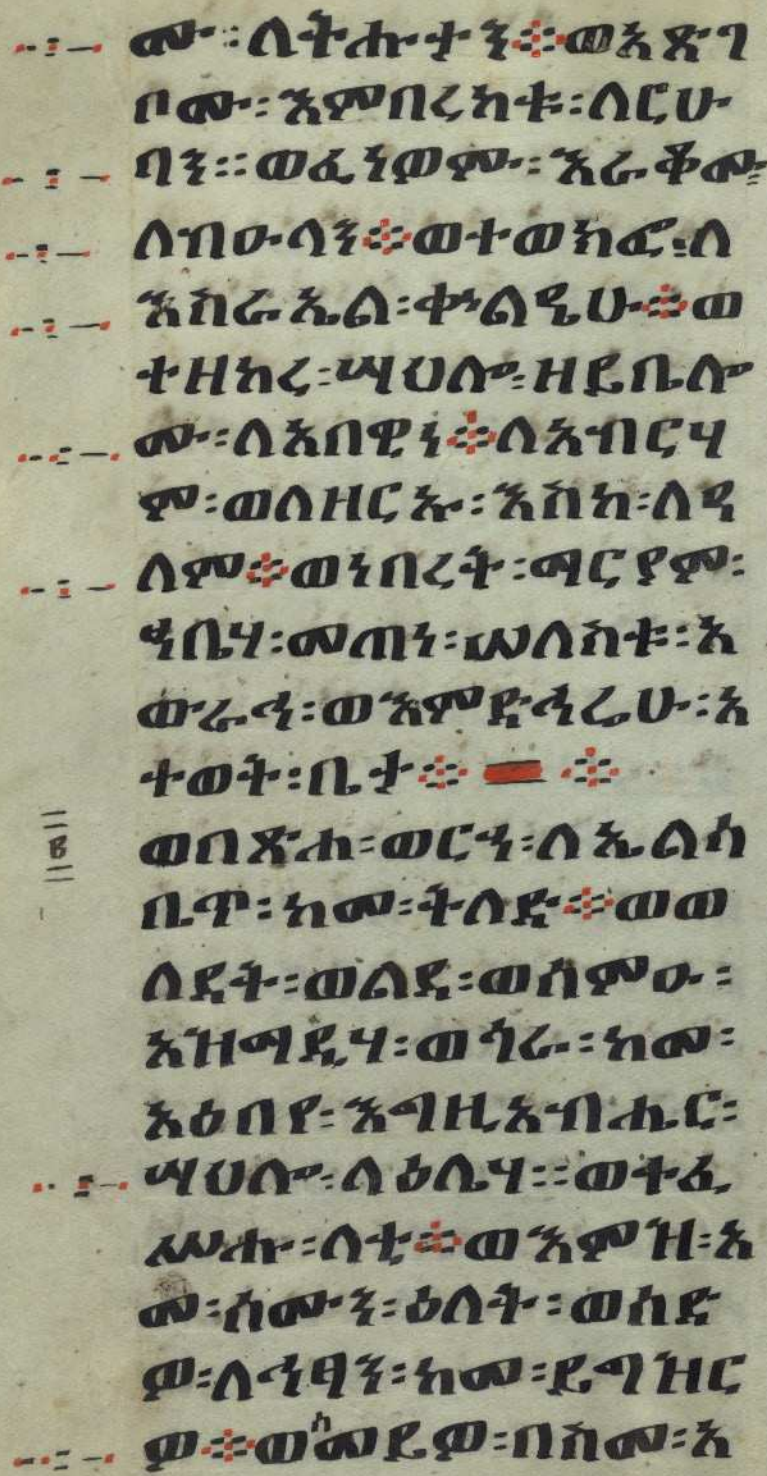 ሙ፡ለትሑታን፨ወአጽገ
ቦሙ፡እምበረከቱ፡ለርሁ
ባን፡፡ወፈነወሙ፡እራቆሙ፡
ለብዑላን፨ወተወክፎ፡ለ
እስራኤል፡ቍልዔሁ፨ወ
ተዘከረ፡ሣህሎ፡ዘይቤሎ
ሙ፡ለአበዊነ፨ለአብርሃ
ም፡ወለዘርኡ፡እስከ፡ለዓ
ለም፨ወነበረት፡ማርያም፡
ኀቤሃ፡መጠነ፡ሠለስቱ፡አ
ውራኅ፡ወእምድኅሬሁ፡አ
ተወት፡ቤታ፨ ፨
፪
ወበጽሐ፡ወርኀ፡ለኤልሳ
ቤጥ፡ከመ፡ትለድ፨ወወ
ለደት፡ወልደ፡ወሰምዑ፡
አዝማዲሃ፡ወጎራ፡ከመ፡
አዕበየ፡እግዚአብሔር፡
ሣህሎ፡ላዕሌሃ፡፡ወተፈ
ሥሑ፡ላቲ፨ወእምዝ፡አ
መ፡ሰሙን፡ዕለት፡ወሰድ
ዎ፡ለሕፃን፡ከመ፡ይግዝር
ዎ፨ወሰመይዎ፡በስመ፡አ